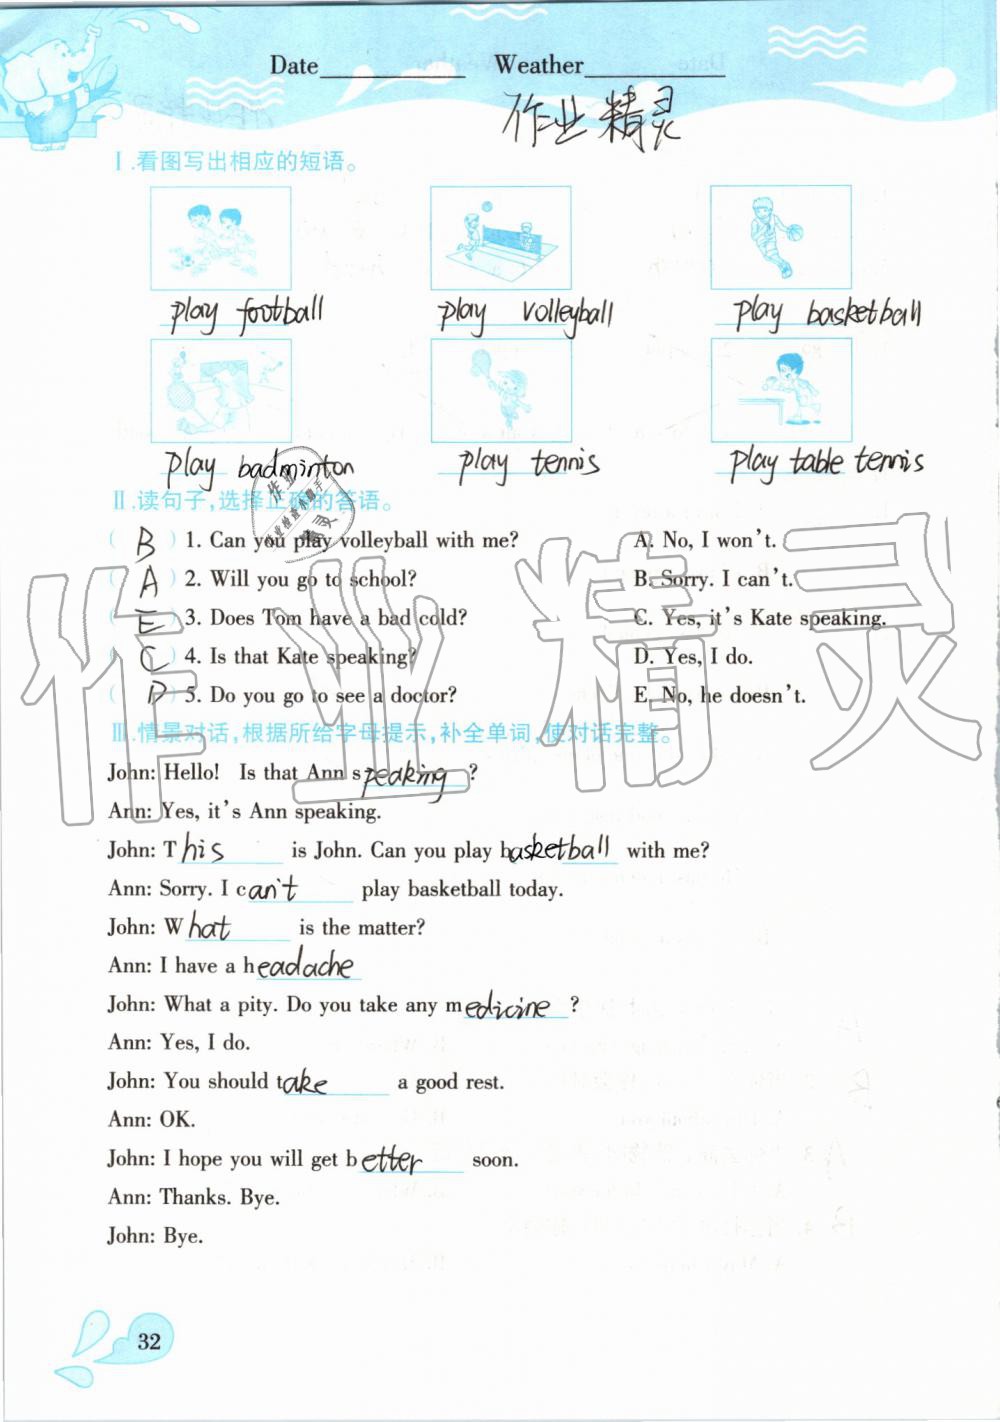 Date Weather
作业精灵
Ⅰ.看图写出相应的短语。
play football play volleyball play basketball
play badminton play tennis play table tennis
Ⅱ.读句子,选择正确的答语。
( B ) 1. Can you play volleyball with me? A. No, I won't.
( A ) 2. Will you go to school? B. Sorry. I can't.
( E ) 3. Does Tom have a bad cold? C. Yes, it's Kate speaking.
( C ) 4. Is that Kate speaking? D. Yes, I do.
( D ) 5. Do you go to see a doctor? E. No, he doesn't.
Ⅲ.情景对话,根据所给字母提示,补全单词,使对话完整。
John: Hello! Is that Ann speaking?
Ann: Yes, it's Ann speaking.
John: This is John. Can you play basketball with me?
Ann: Sorry. I can't play basketball today.
John: What is the matter?
Ann: I have a headache
John: What a pity. Do you take any medicine?
Ann: Yes, I do.
John: You should take a good rest.
Ann: OK.
John: I hope you will get better soon.
Ann: Thanks. Bye.
John: Bye.
32
作业精灵